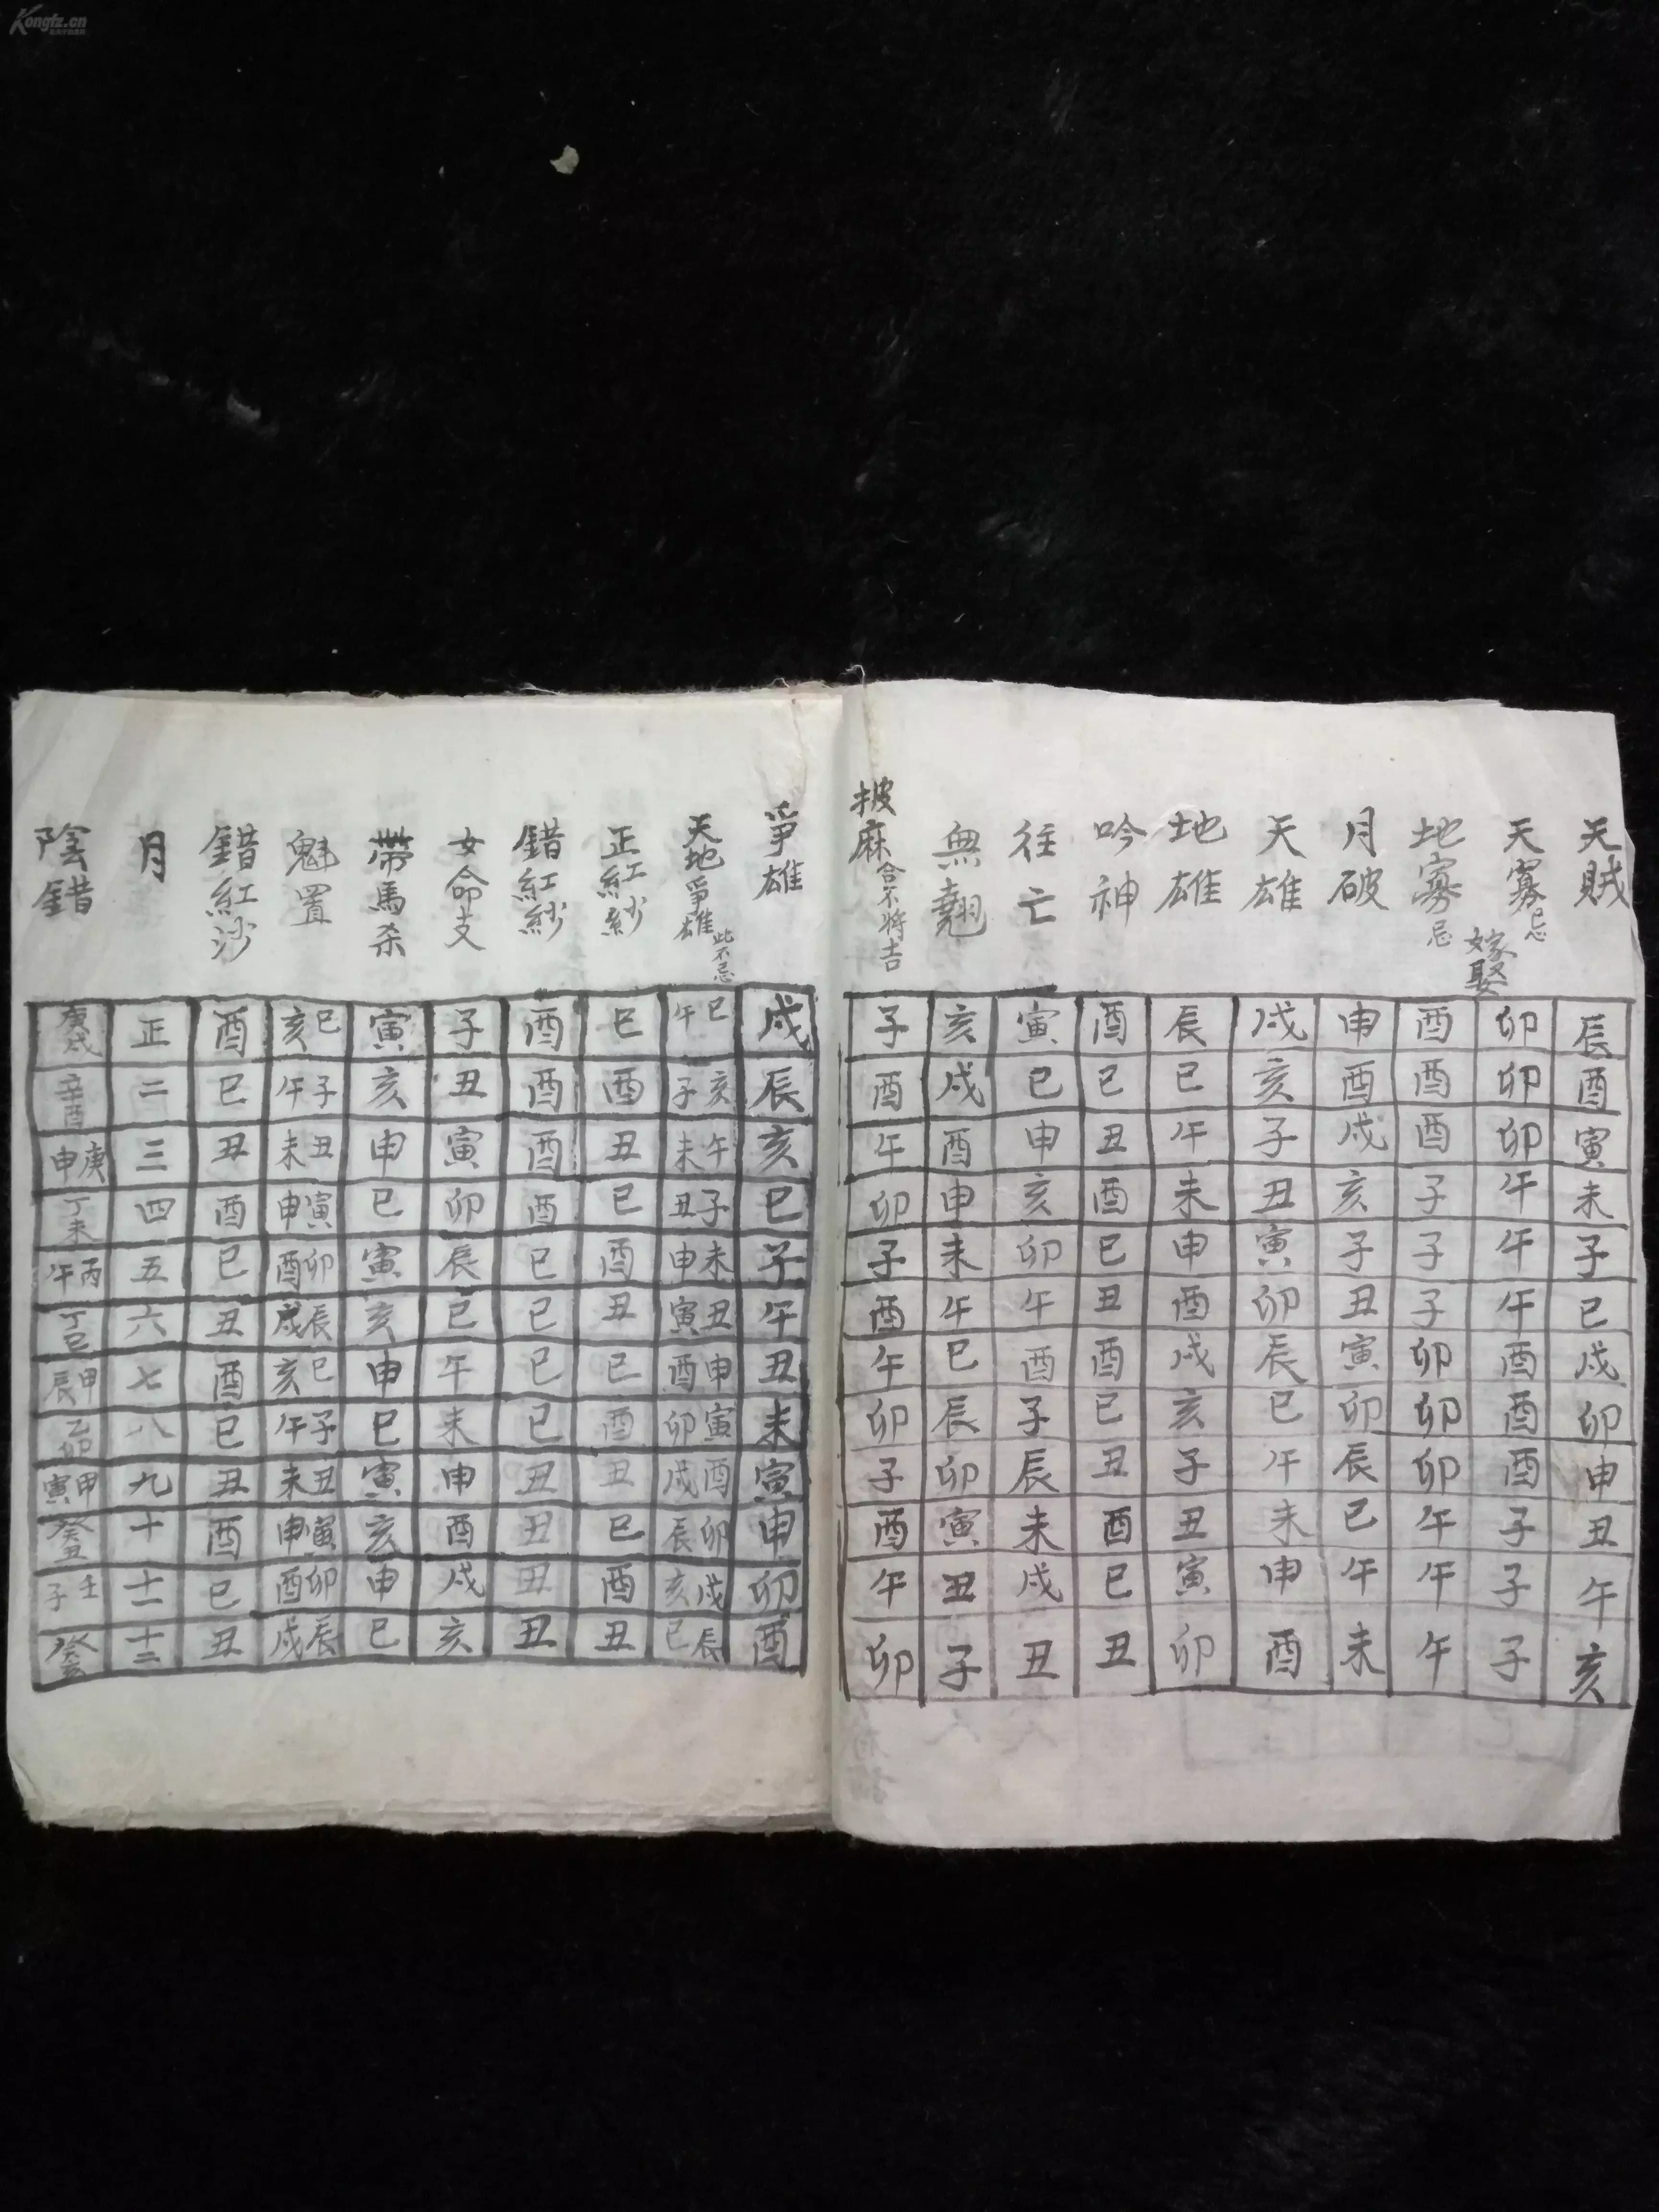 天賊
辰酉寅未子巳戌卯申丑午亥
天寡忌
卯卯卯午午午酉酉酉子子子
嫁娶
地寡忌
酉酉酉子子子卯卯卯午午午
月破
申酉戌亥子丑寅卯辰巳午未
天雄
戌亥子丑寅卯辰巳午未申酉
地雄
辰巳午未申酉戌亥子丑寅卯
吟神
酉巳丑酉巳丑酉巳丑酉巳丑
往亡
寅巳申亥卯午酉子辰未戌丑
無翹
亥戌酉申未午巳辰卯寅丑子
披麻合不將吉
子酉午卯子酉午卯子酉午卯
爭雄
戌辰亥巳子午丑未寅申卯酉
天地爭雄此不忌
巳午 亥子 午未 子丑 未申 丑寅 申酉 寅卯 酉戌 卯辰 戌亥 辰巳
正紅紗
巳酉丑巳酉丑巳酉丑巳酉丑
錯紅紗
酉酉酉酉巳巳巳巳丑丑丑丑
女命支
子丑寅卯辰巳午未申酉戌亥
帶馬杀
寅亥申巳寅亥申巳寅亥申巳
魁置
巳亥 子午 丑未 寅申 卯酉 辰戌 巳亥 子午 丑未 寅申 卯酉 辰戌
錯紅沙
酉巳丑酉巳丑酉巳丑酉巳丑
月
正 二 三 四 五 六 七 八 九 十 十一 十二
陰錯
庚戌 辛酉 庚申 丁未 丙午 丁巳 甲辰 乙卯 甲寅 癸丑 壬子 癸亥
Kongfz.cn